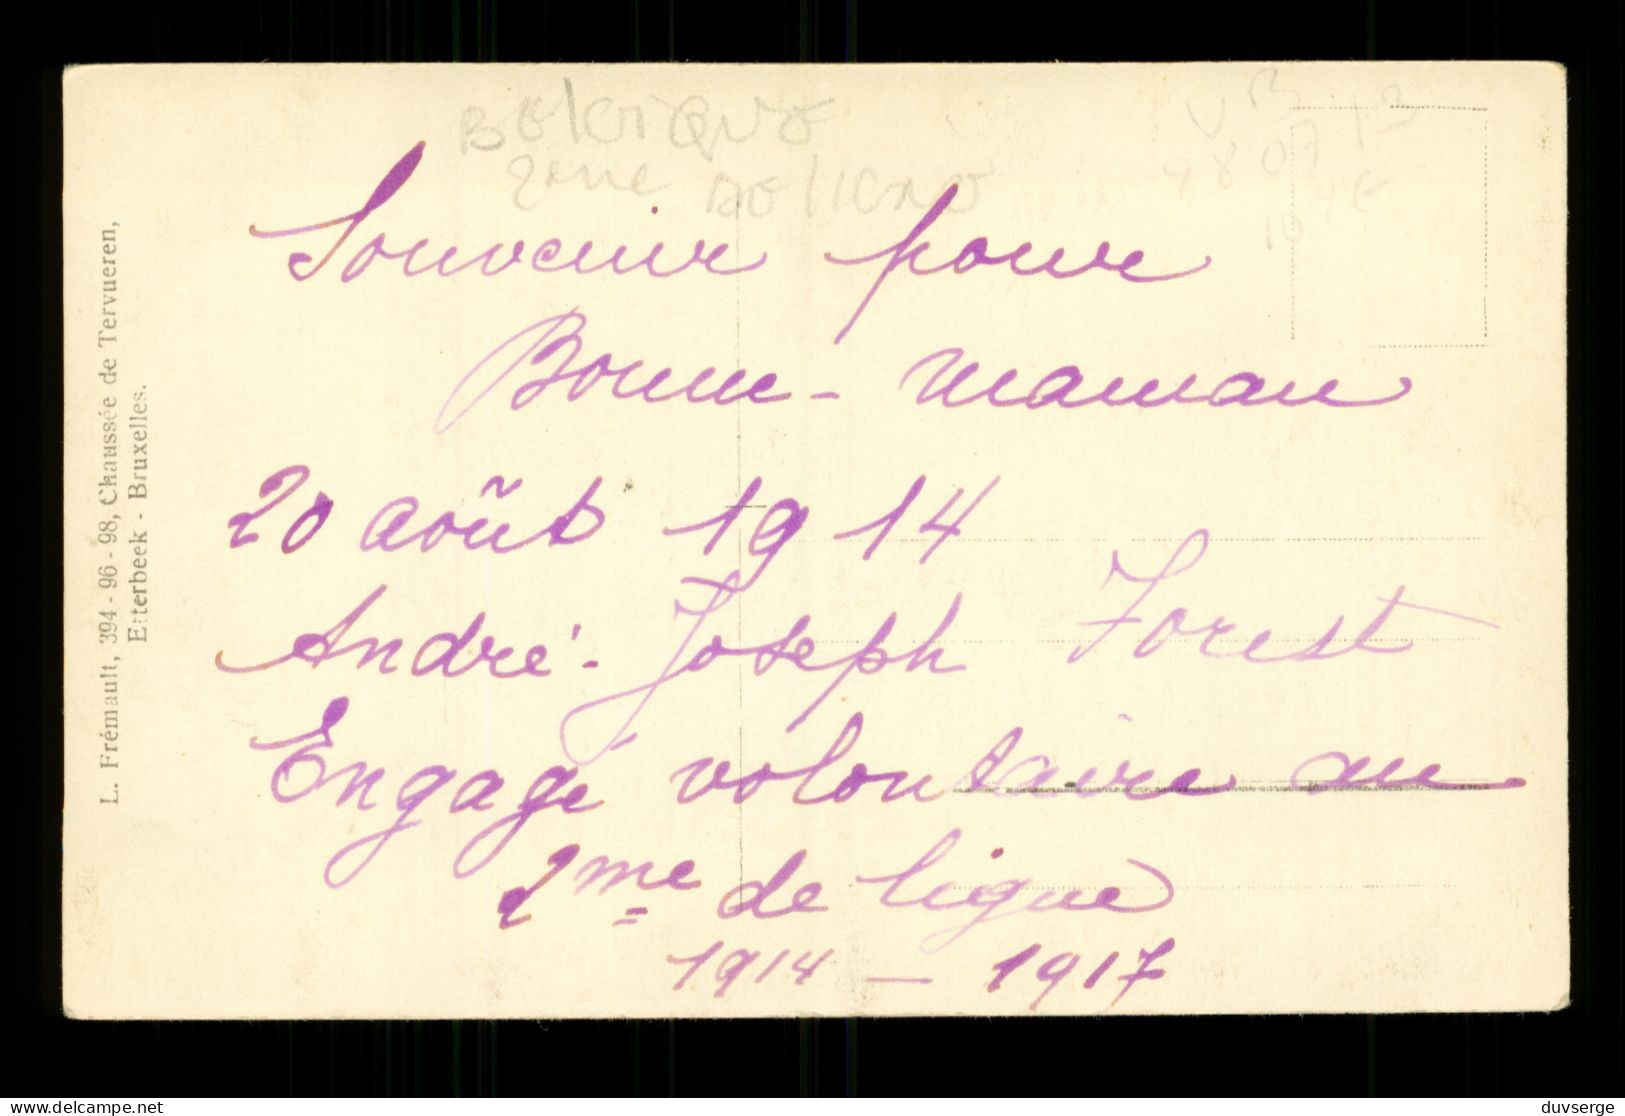 BElGIQUE
2ème DE lIGNE
Souvenir pour
Bonne-maman
20 août 1914
André-Joseph Forest
Engagé volontaire au
2me de ligne
1914 — 1917
L. Frémault, 394-96-98, Chaussée de Tervueren,
Etterbeek - Bruxelles.
www.delcampe.net
duvserge